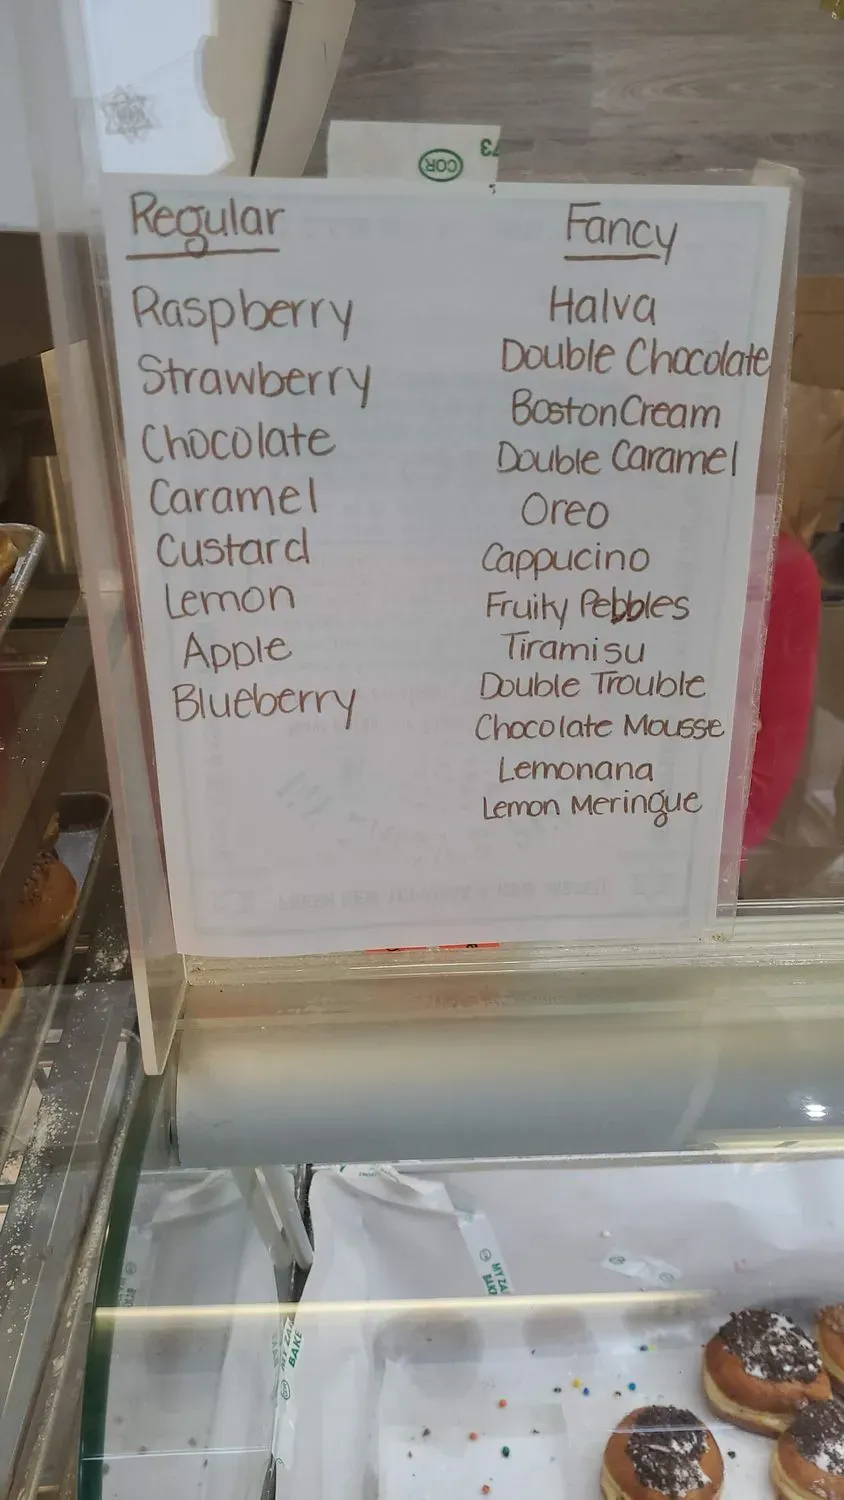 COR
73
Regular
Raspberry
Strawberry
Chocolate
Caramel
Custard
Lemon
Apple
Blueberry
Fancy
Halva
Double Chocolate
Boston Cream
Double Caramel
Oreo
Cappucino
Fruity Pebbles
Tiramisu
Double Trouble
Chocolate Mousse
Lemonana
Lemon Meringue
MY ZA
BAKE
MY ZA
BAKE